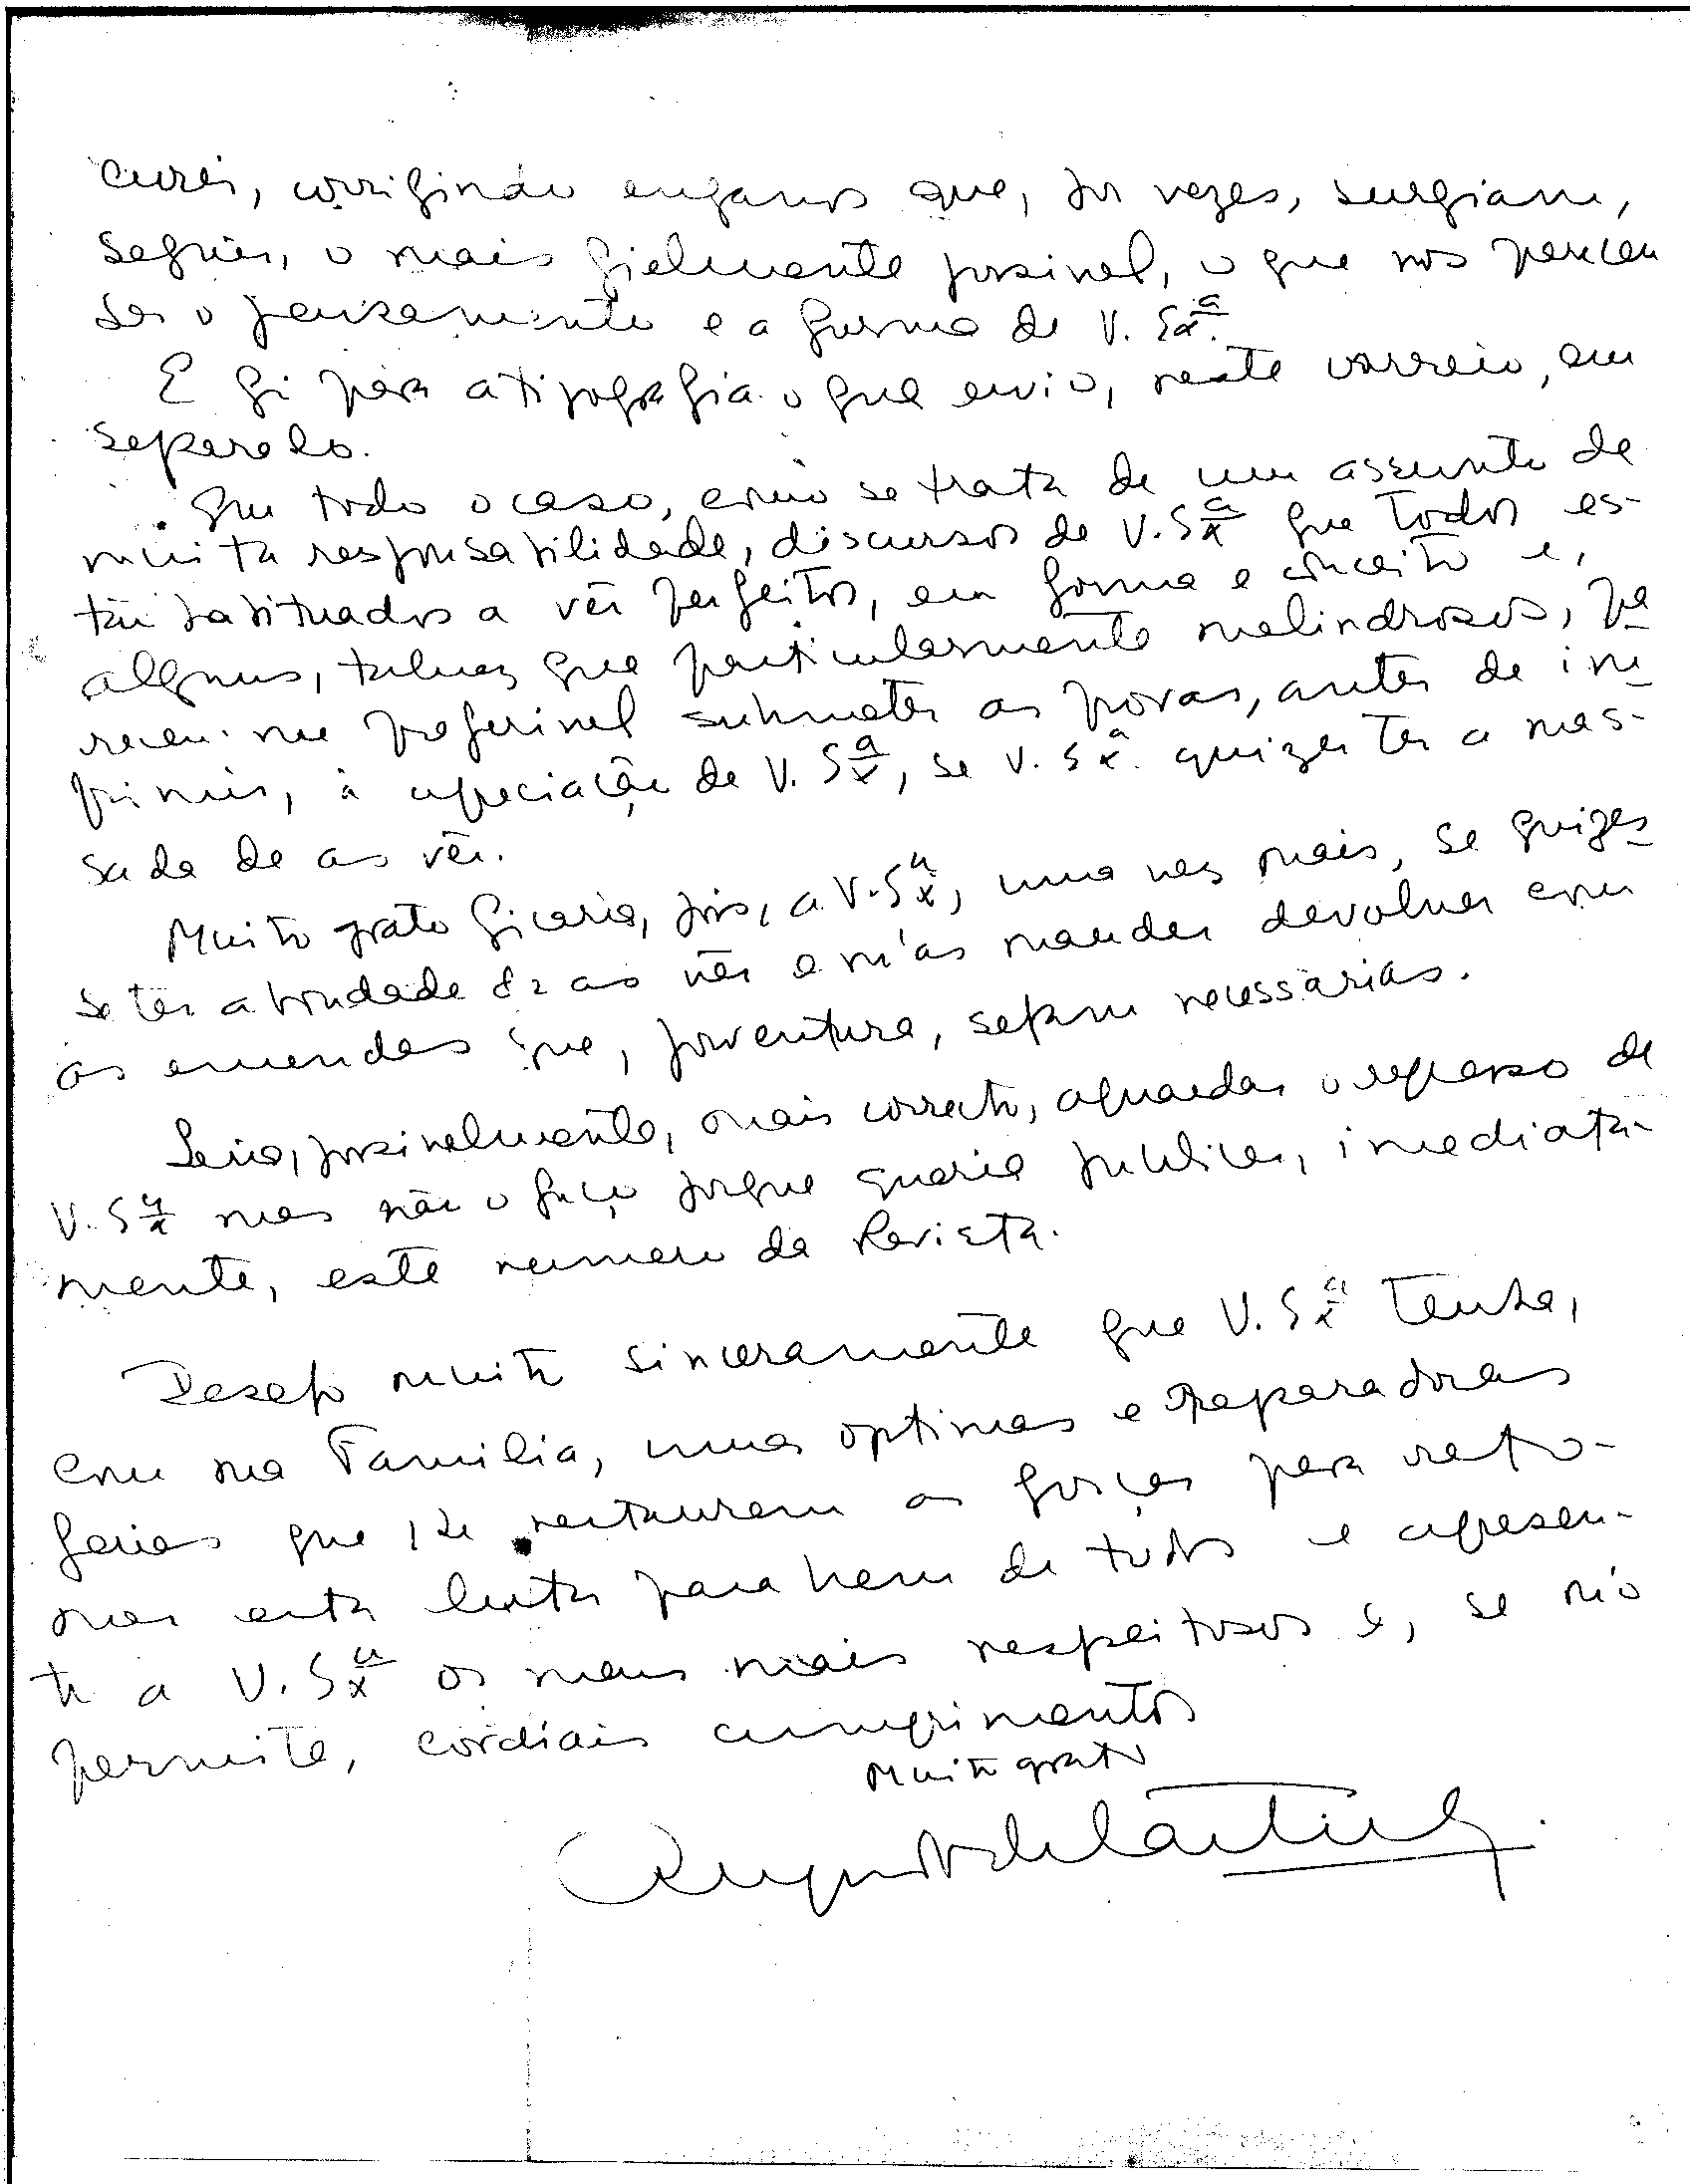 curei, corrigindo enganos que, por vezes, surgiam,
seguir, o mais fielmente possivel, o que nos pareceu
ser o pensamento e a forma de V. Exª.
E foi para a tipografia o que envio, neste correio, em
separado.
Em todo o caso, como se trata de um assunto de
muita responsabilidade, discursos de V. Exª que todos es-
tão habituados a vêr perfeitos, em forma e conceito e,
alguns, talvez que particularmente melindrosos, pa-
receu-me preferivel submeter as provas, antes de im-
primir, à apreciação de V. Exª, se V. Exª quizer ter a mas-
sada de as vêr.
Muito grato ficaria, pois, a V. Exª, uma vez mais, se quizes-
se ter a bondade de as vêr e m'as mandar devolver com
as emendas que, porventura, sejam necessarias.
Seria, possivelmente, mais correcto, aguardar o regresso de
V. Exª mas não o faço porque queria publicar, imediata-
mente, este numero da Revista.
Desejo muito sinceramente que V. Exª tenha,
com sua Familia, umas optimas e reparadoras
ferias que lhe restaurem as forças para reto-
mar esta luta para bem de todos e apresen-
to a V. Exª os meus mais respeitosos e, se m'o
permite, cordiais cumprimentos
Muito grato